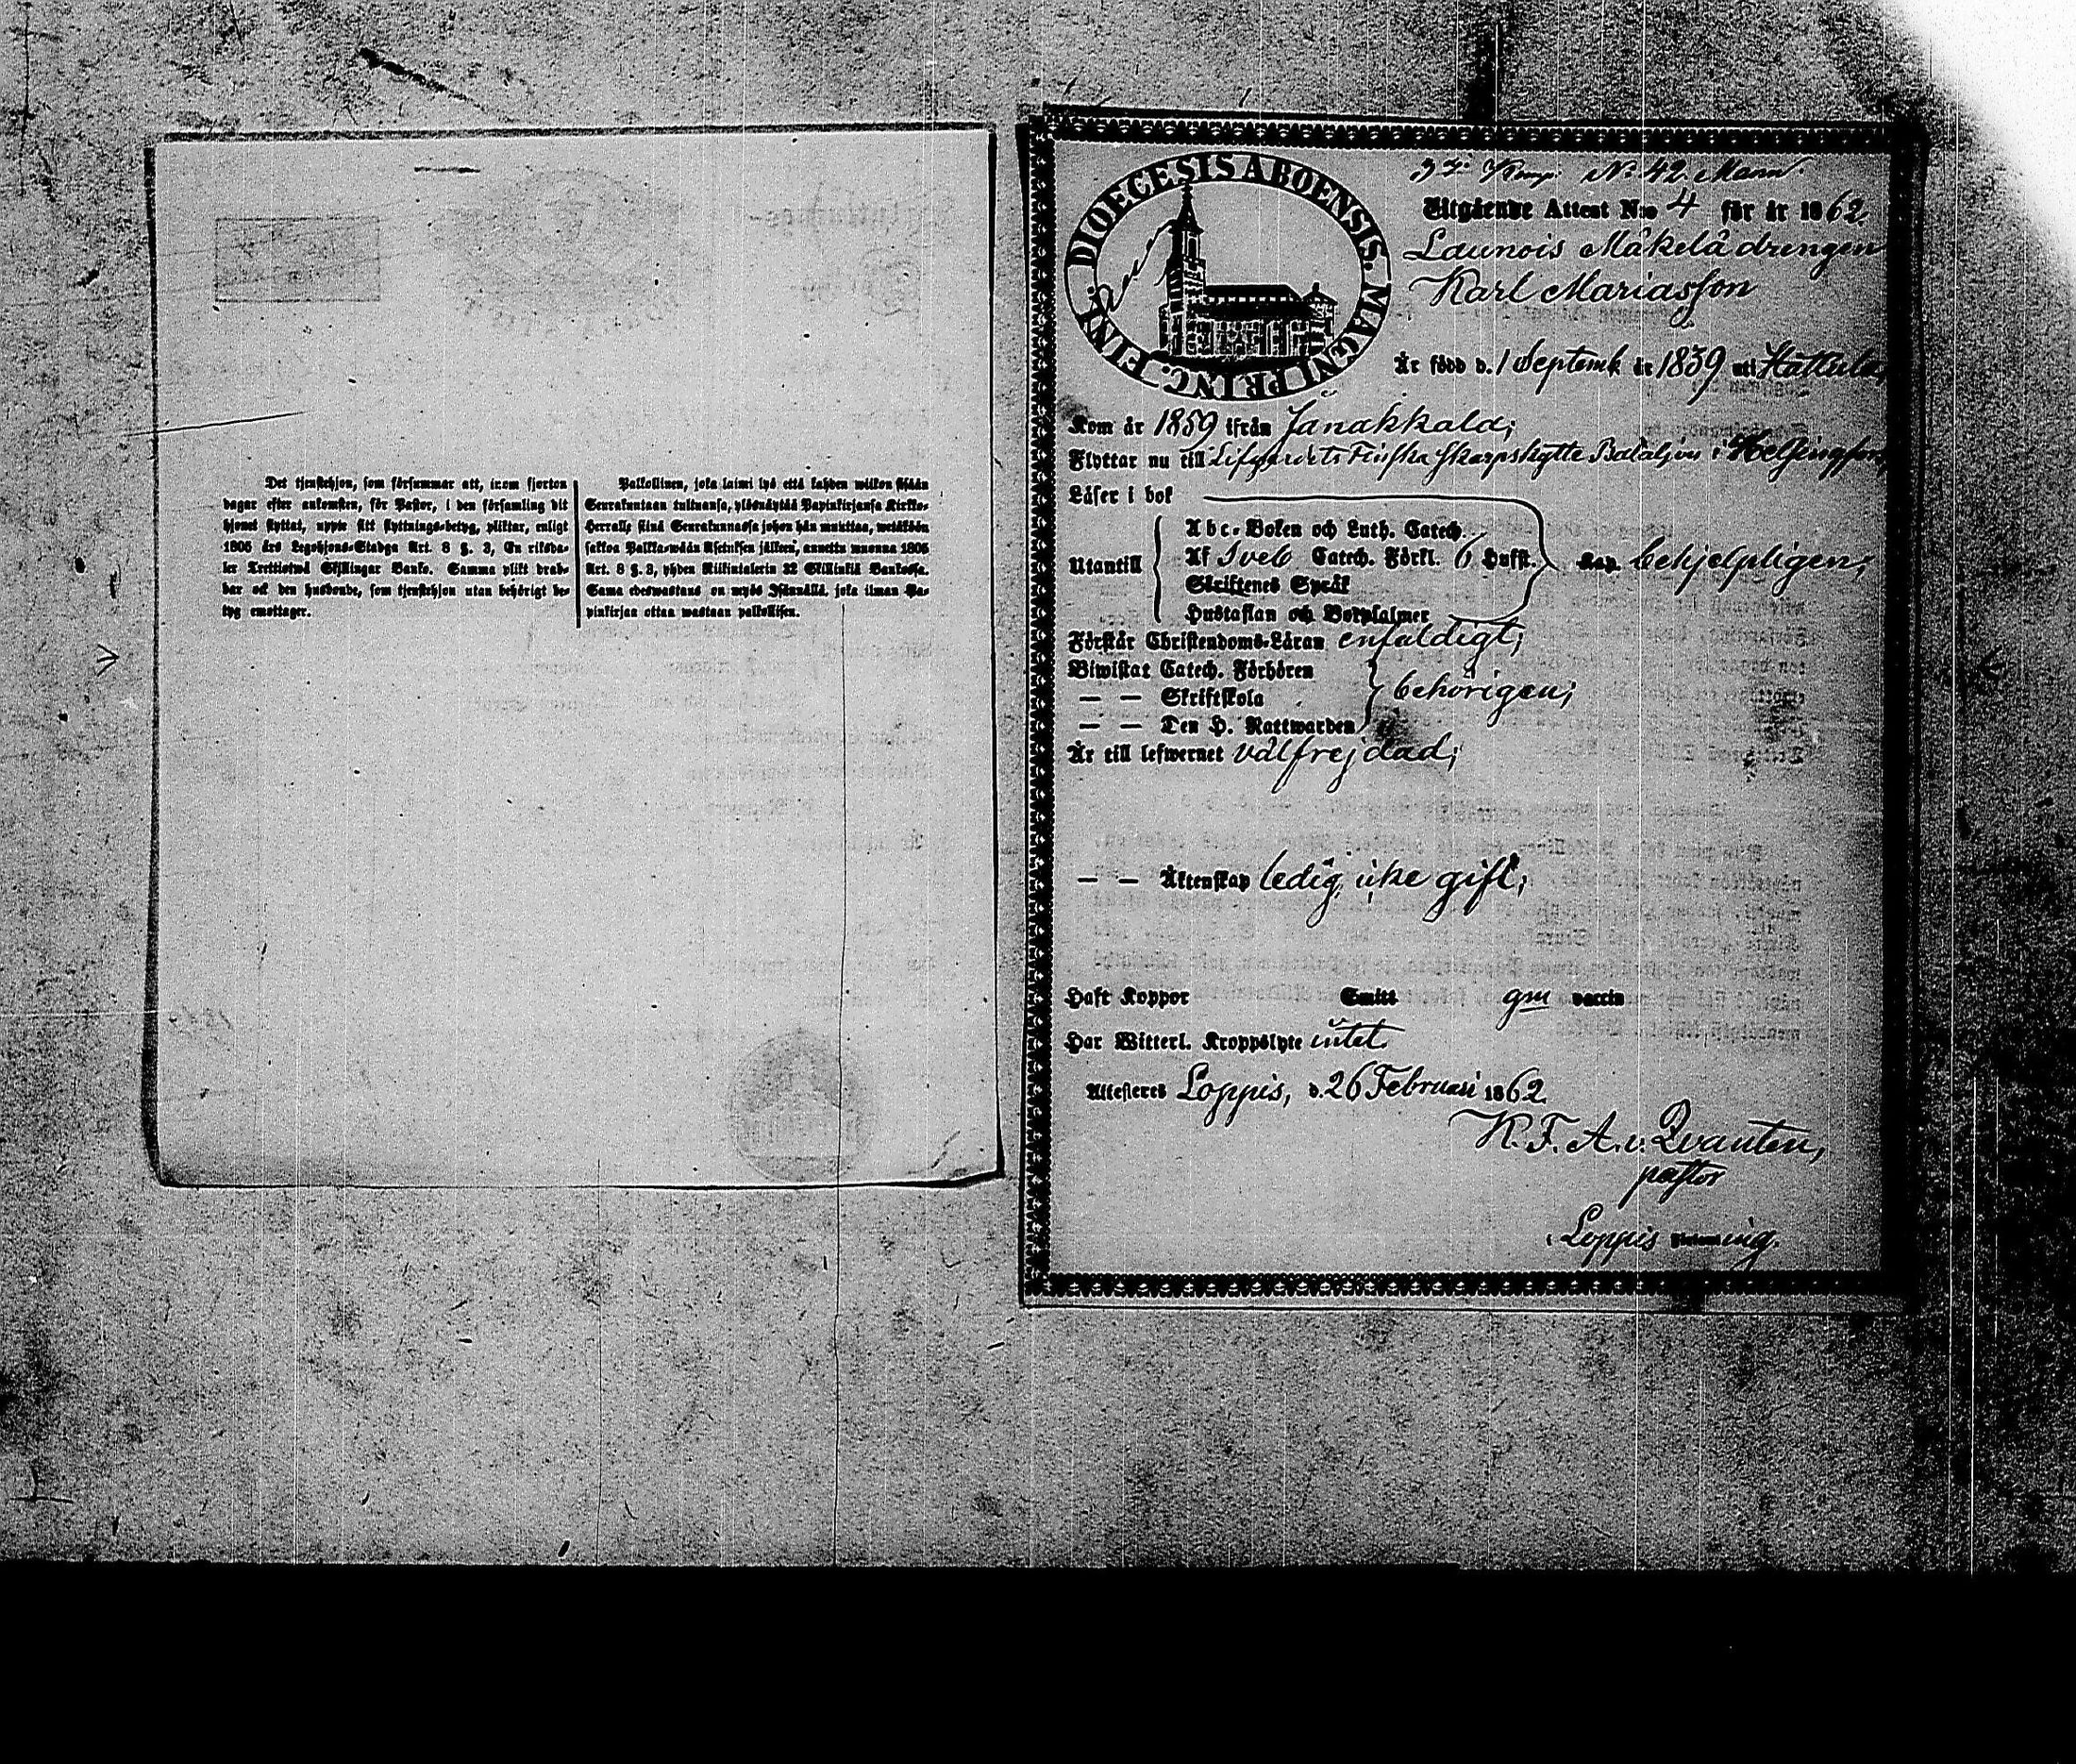 Det tjenstehjon, som försummar att, inom fjorton
dagar efter ankomsten, för Pastor, i den församling dit
hjonet flyttat, uppte sitt flyttnings-betyg, pliktar, enligt
1805 års Legohjons-Stadga Art. 8 §. 3, En riksda-
ler Trettiotwå Skillingar Banko. Samma plikt drab-
bar ock den husbonde, som tjenstehjon utan behörigt be-
tyg emottager.
Palkollinen, joka laimi lyö että kahden wiikon sisään
Seurakuntaan tultuansa, ylösnäyttää Papinkirjansa Kirkko-
Herralle siinä Seurakunnassa johon hän muuttaa, wetäköön
sakkoa Palkka-wäen Asetuksen jälkeen, annettu wuonna 1805
Art. 8 §. 3, yhden Riikintalerin 32 Skillinkiä Bankossa.
Sama edeswastaus on myös Isännällä, joka ilman Pa-
pinkirjan ottaa wastaan palkollisen.
DIOECESIS ABOENSIS. MAGNI PRINC. FINL.
Komp. No 42 Mann
Utgående Attest N:o 4 för år 1862
Launois Mäkelä drengen
Karl Mariasson
Är född d. 1 Septemb år 1839 uti Hattula,
Kom år 1859 ifrån Janakkala;
Flyttar nu till Lifgardets Finska Skarpskytte Bataljon i Helsingfors,
Läser i bok
Utantill
Abc-Boken och Luth. Catech.
Af Sveb Catech. Förkl. 6 Hufst.
Skriftenes Språk
Hustaflan och Botpsalmer
behjelpligen;
Förstår Christendoms-Läran enfaldigt;
Biwistat Catech. Förhören
— — Skriftskola
— — Den H. Nattwarden
behörigen;
Är till lefwernet välfrejdad;
— — Äktenskap ledig, icke gift;
Haft Koppor Smitt gm vaccin
Har Witterl. Kroppslyte intet.
Attesteres Loppis, d. 26 Februari 1862.
K. F. A. v. Qvanten,
pastor
i Loppis